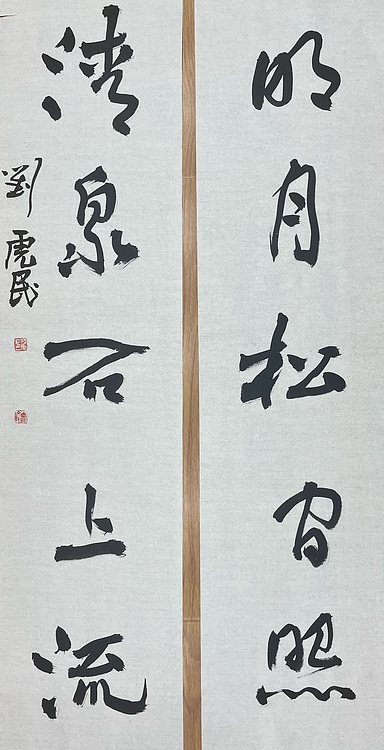 明月松间照
清泉石上流
劉虎民